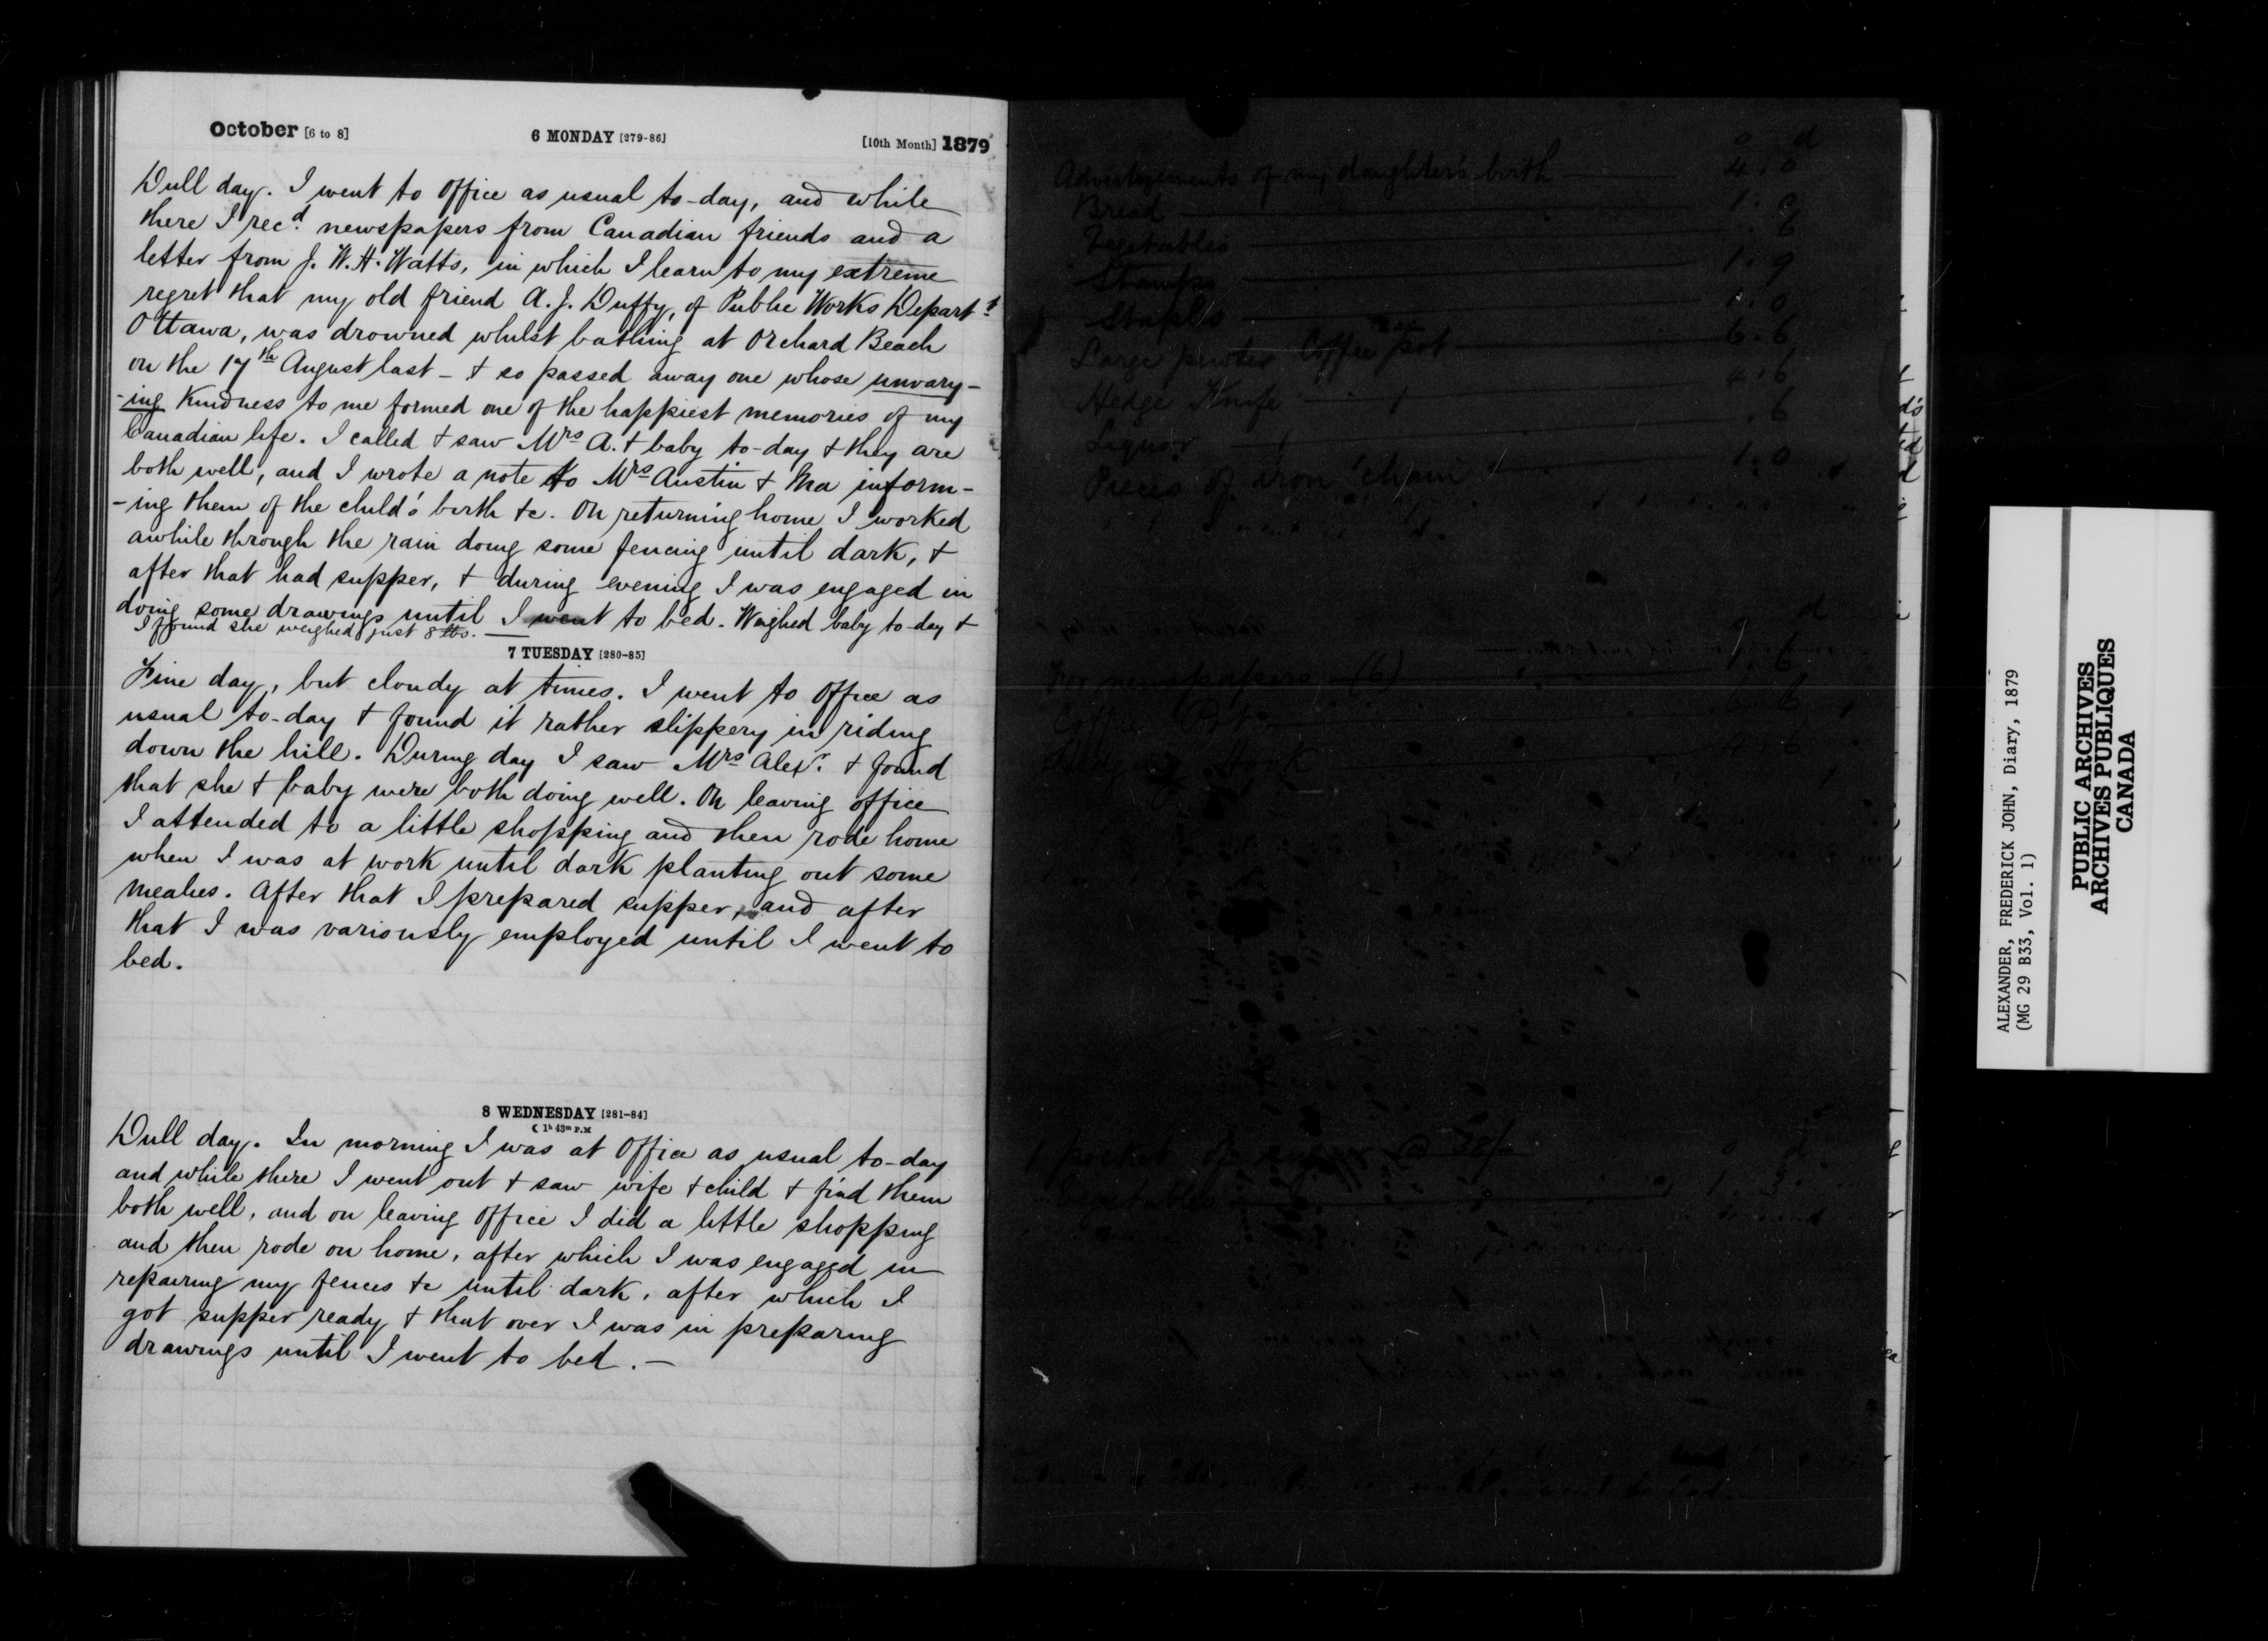 October [6 to 8] 6 MONDAY [279-86] [10th Month] 1879
Dull day. I went to Office as usual to-day, and while
there I rec.d newspapers from Canadian friends and a
letter from J. W. H. Watts, in which I learn to my extreme
regret that my old friend A. J. Duffy, of Public Works Depart.t
Ottawa, was drowned whilst bathing at Orchard Beach
on the 17th August last - & so passed away one whose unvary-
-ing kindness to me formed one of the happiest memories of my
Canadian life. I called & saw Mrs A. & baby to-day & they are
both well, and I wrote a note to Mrs Austin & Ma inform-
-ing them of the child's birth &c. On returning home I worked
awhile through the rain doing some fencing until dark, &
after that had supper, & during evening I was engaged in
doing some drawings until I went to bed. Weighed baby to-day &
I found she weighed just 8 lbs.
7 TUESDAY [280-85]
Fine day, but cloudy at times. I went to Office as
usual to-day & found it rather slippery in riding
down the hill. During day I saw Mrs Alexr. & found
that she & baby were both doing well. On leaving office
I attended to a little shopping and then rode home
when I was at work until dark planting out some
mealies. After that I prepared supper, and after
that I was variously employed until I went to
bed.
8 WEDNESDAY [281-84]
☾ 1h 43m P.M
Dull day. In morning I was at Office as usual to-day
and while there I went out & saw wife & child & find them
both well, and on leaving Office I did a little shopping
and then rode on home, after which I was engaged in
repairing my fences &c until dark, after which I
got supper ready & that over I was in preparing
drawings until I went to bed. -
Advertizements of my daughter's birth 4.0
Bread
Vegetables 6
Stamps 1.9
Staples 1.0
Large pewter Coffee pot 6.6
Hedge Knife 4.6
Liquor .6
Pieces of iron chain 1.0
newspapers (6)
ALEXANDER, FREDERICK JOHN, Diary, 1879
(MG 29 B33, Vol. 1)
PUBLIC ARCHIVES
ARCHIVES PUBLIQUES
CANADA